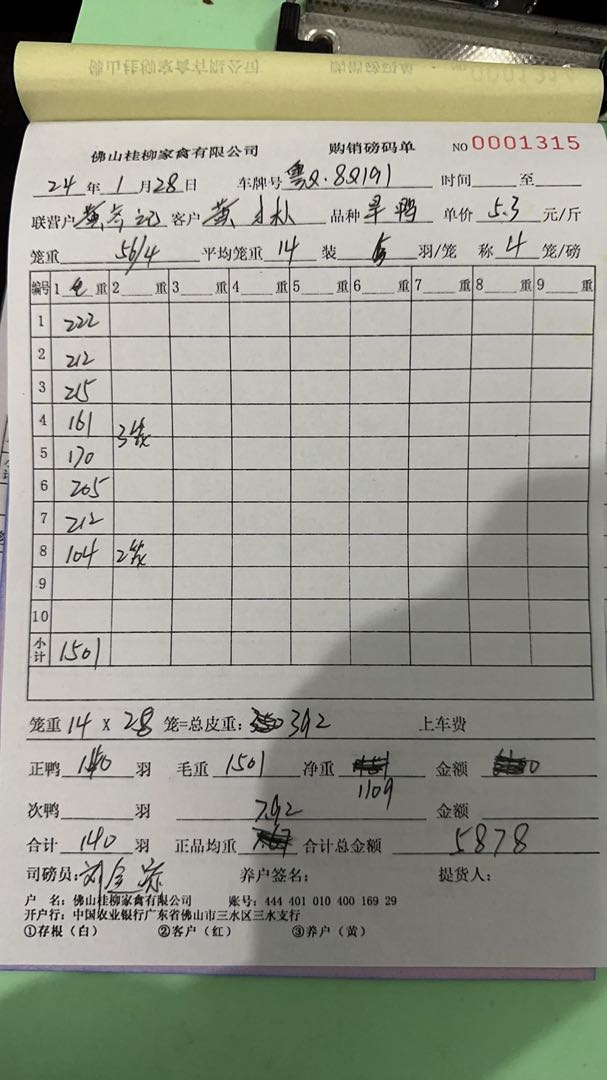 佛山桂柳家禽有限公司 购销磅码单 NO 0001315
24 年 1 月 28 日 车牌号 粤Q·8Q191 时间 至
联营户 黄 记 客户 黄 林 品种 旱鸭 单价 5.3 元/斤
笼重 56/4 平均笼重 14 装 5 羽/笼 称 4 笼/磅
编号 1 毛 重 2 重 3 重 4 重 5 重 6 重 7 重 8 重 9 重
1 222
2 212
3 215
4 161 3笼
5 170
6 205
7 212
8 104 2笼
9
10
小计 1501
笼重 14 X 28 笼=总皮重: 392 上车费
正鸭 140 羽 毛重 1501 净重 1109 金额
次鸭 羽 7.92 金额
合计 140 羽 正品均重 合计总金额 5878
司磅员: 刘 养户签名: 提货人:
户 名: 佛山桂柳家禽有限公司 账号: 444 401 010 400 169 29
开户行: 中国农业银行广东省佛山市三水区三水支行
①存根(白) ②客户(红) ③养户(黄)